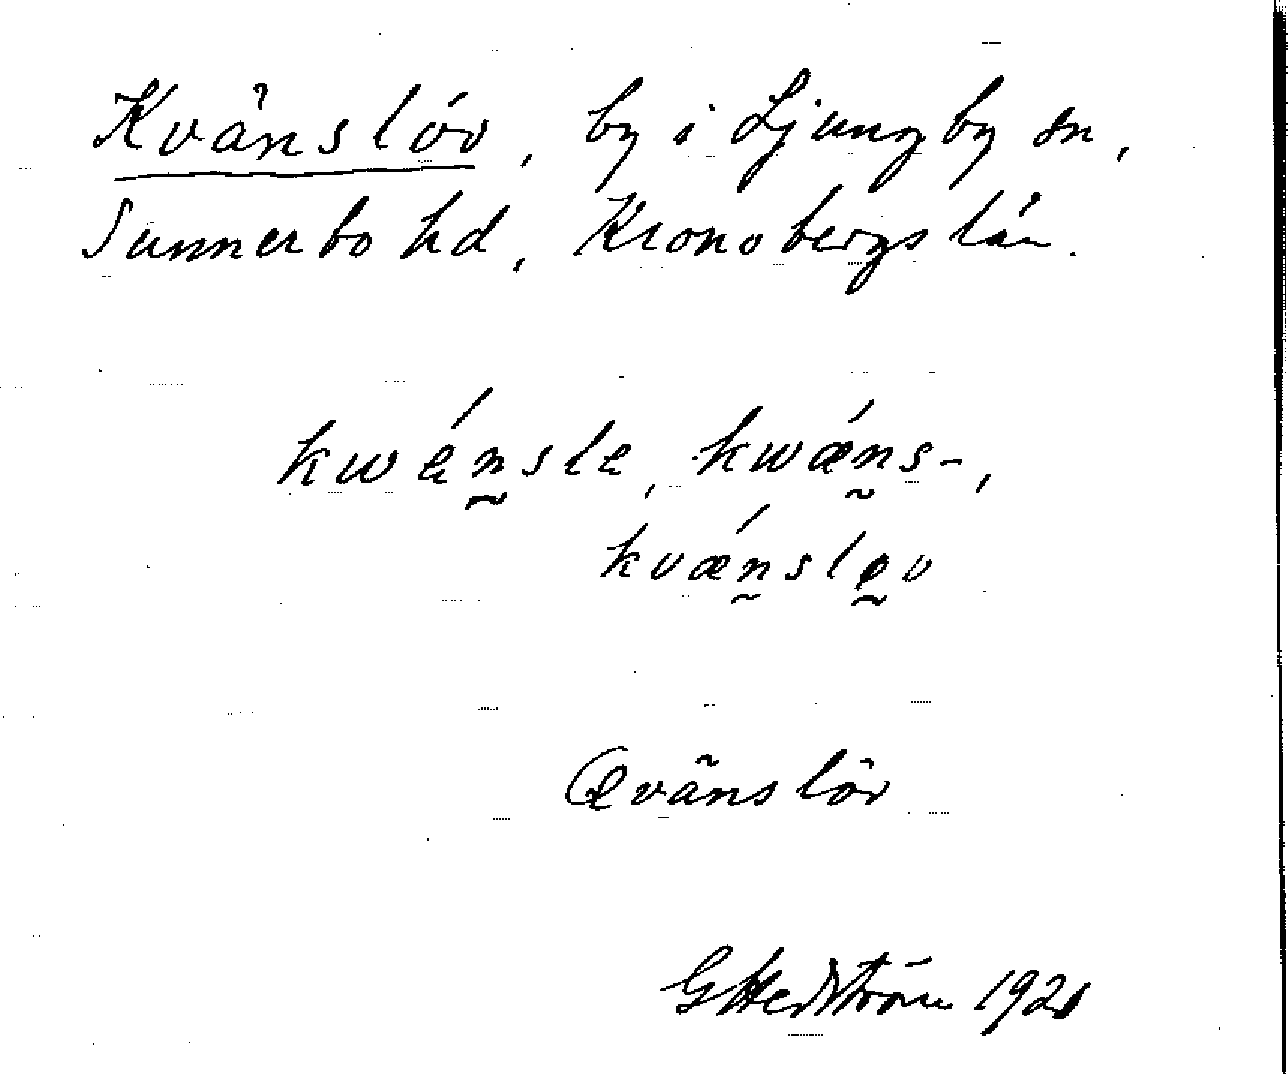 Kvänslöv, by i Ljungby sn,
Sunnerbo hd, Kronobergs län.
kwǽn̰sle, kwǽn̰s-,
kvǽn̰slə̰v
Qvänslöv
G Hedström 1921